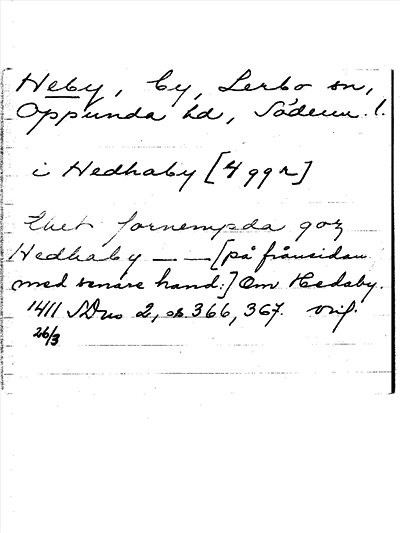 Heby, by, Lerbo sn,
Oppunda hd, Söderm. l.
i Hedhaby [4 ggr]
thet fornempda goz
Hedhaby — — [på frånsidan
med senare hand:] Om Hedaby.
1411 SDns 2, s. 366, 367. orig.
26/3